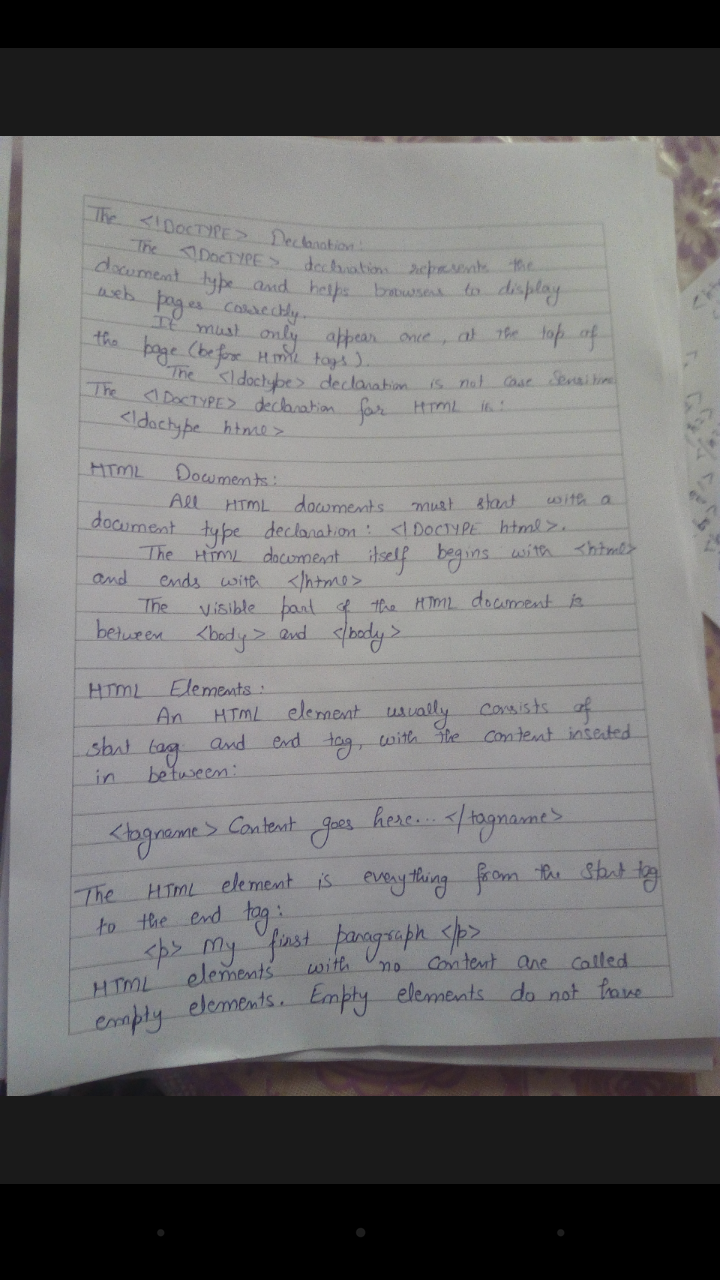 The <!DOCTYPE> Declaration:
The <!DOCTYPE> declaration represents the
document type and helps browsers to display
web pages correctly.
It must only appear once, at the top of
the page (before HTML tags).
The <!doctype> declaration is not case sensitive
The <!DOCTYPE> declaration for HTML is:
<!doctype html>
HTML Documents:
All HTML documents must start with a
document type declaration: <!DOCTYPE html>.
The HTML document itself begins with <html>
and ends with </html>
The visible part of the HTML document is
between <body> and </body>
HTML Elements:
An HTML element usually consists of
start tag and end tag, with the content inserted
in between:
<tagname> Content goes here... </tagname>
The HTML element is everything from the start tag
to the end tag:
<p> My first paragraph </p>
HTML elements with no content are called
empty elements. Empty elements do not have